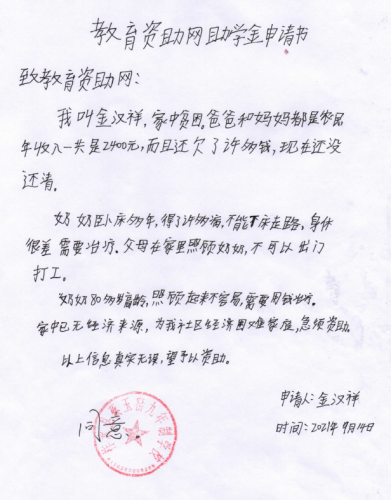 教育资助网助学金申请书
致教育资助网：
我叫金汉祥，家中贫困。爸爸和妈妈都是农民
年收入一共是2400元，而且还欠了许多钱，现在还没
还清。
奶奶卧床多年，得了许多病，不能下床走路，身体
很差需要治疗。父母在家里照顾奶奶，不可以出门
打工。
奶奶80多岁高龄，照顾起来不容易，需要用钱治疗。
家中已无经济来源，为我社区经济困难家庭，急须资助。
以上信息真实无误，望予以资助。
申请人：金汉祥
同意。
时间：2021年9月14日